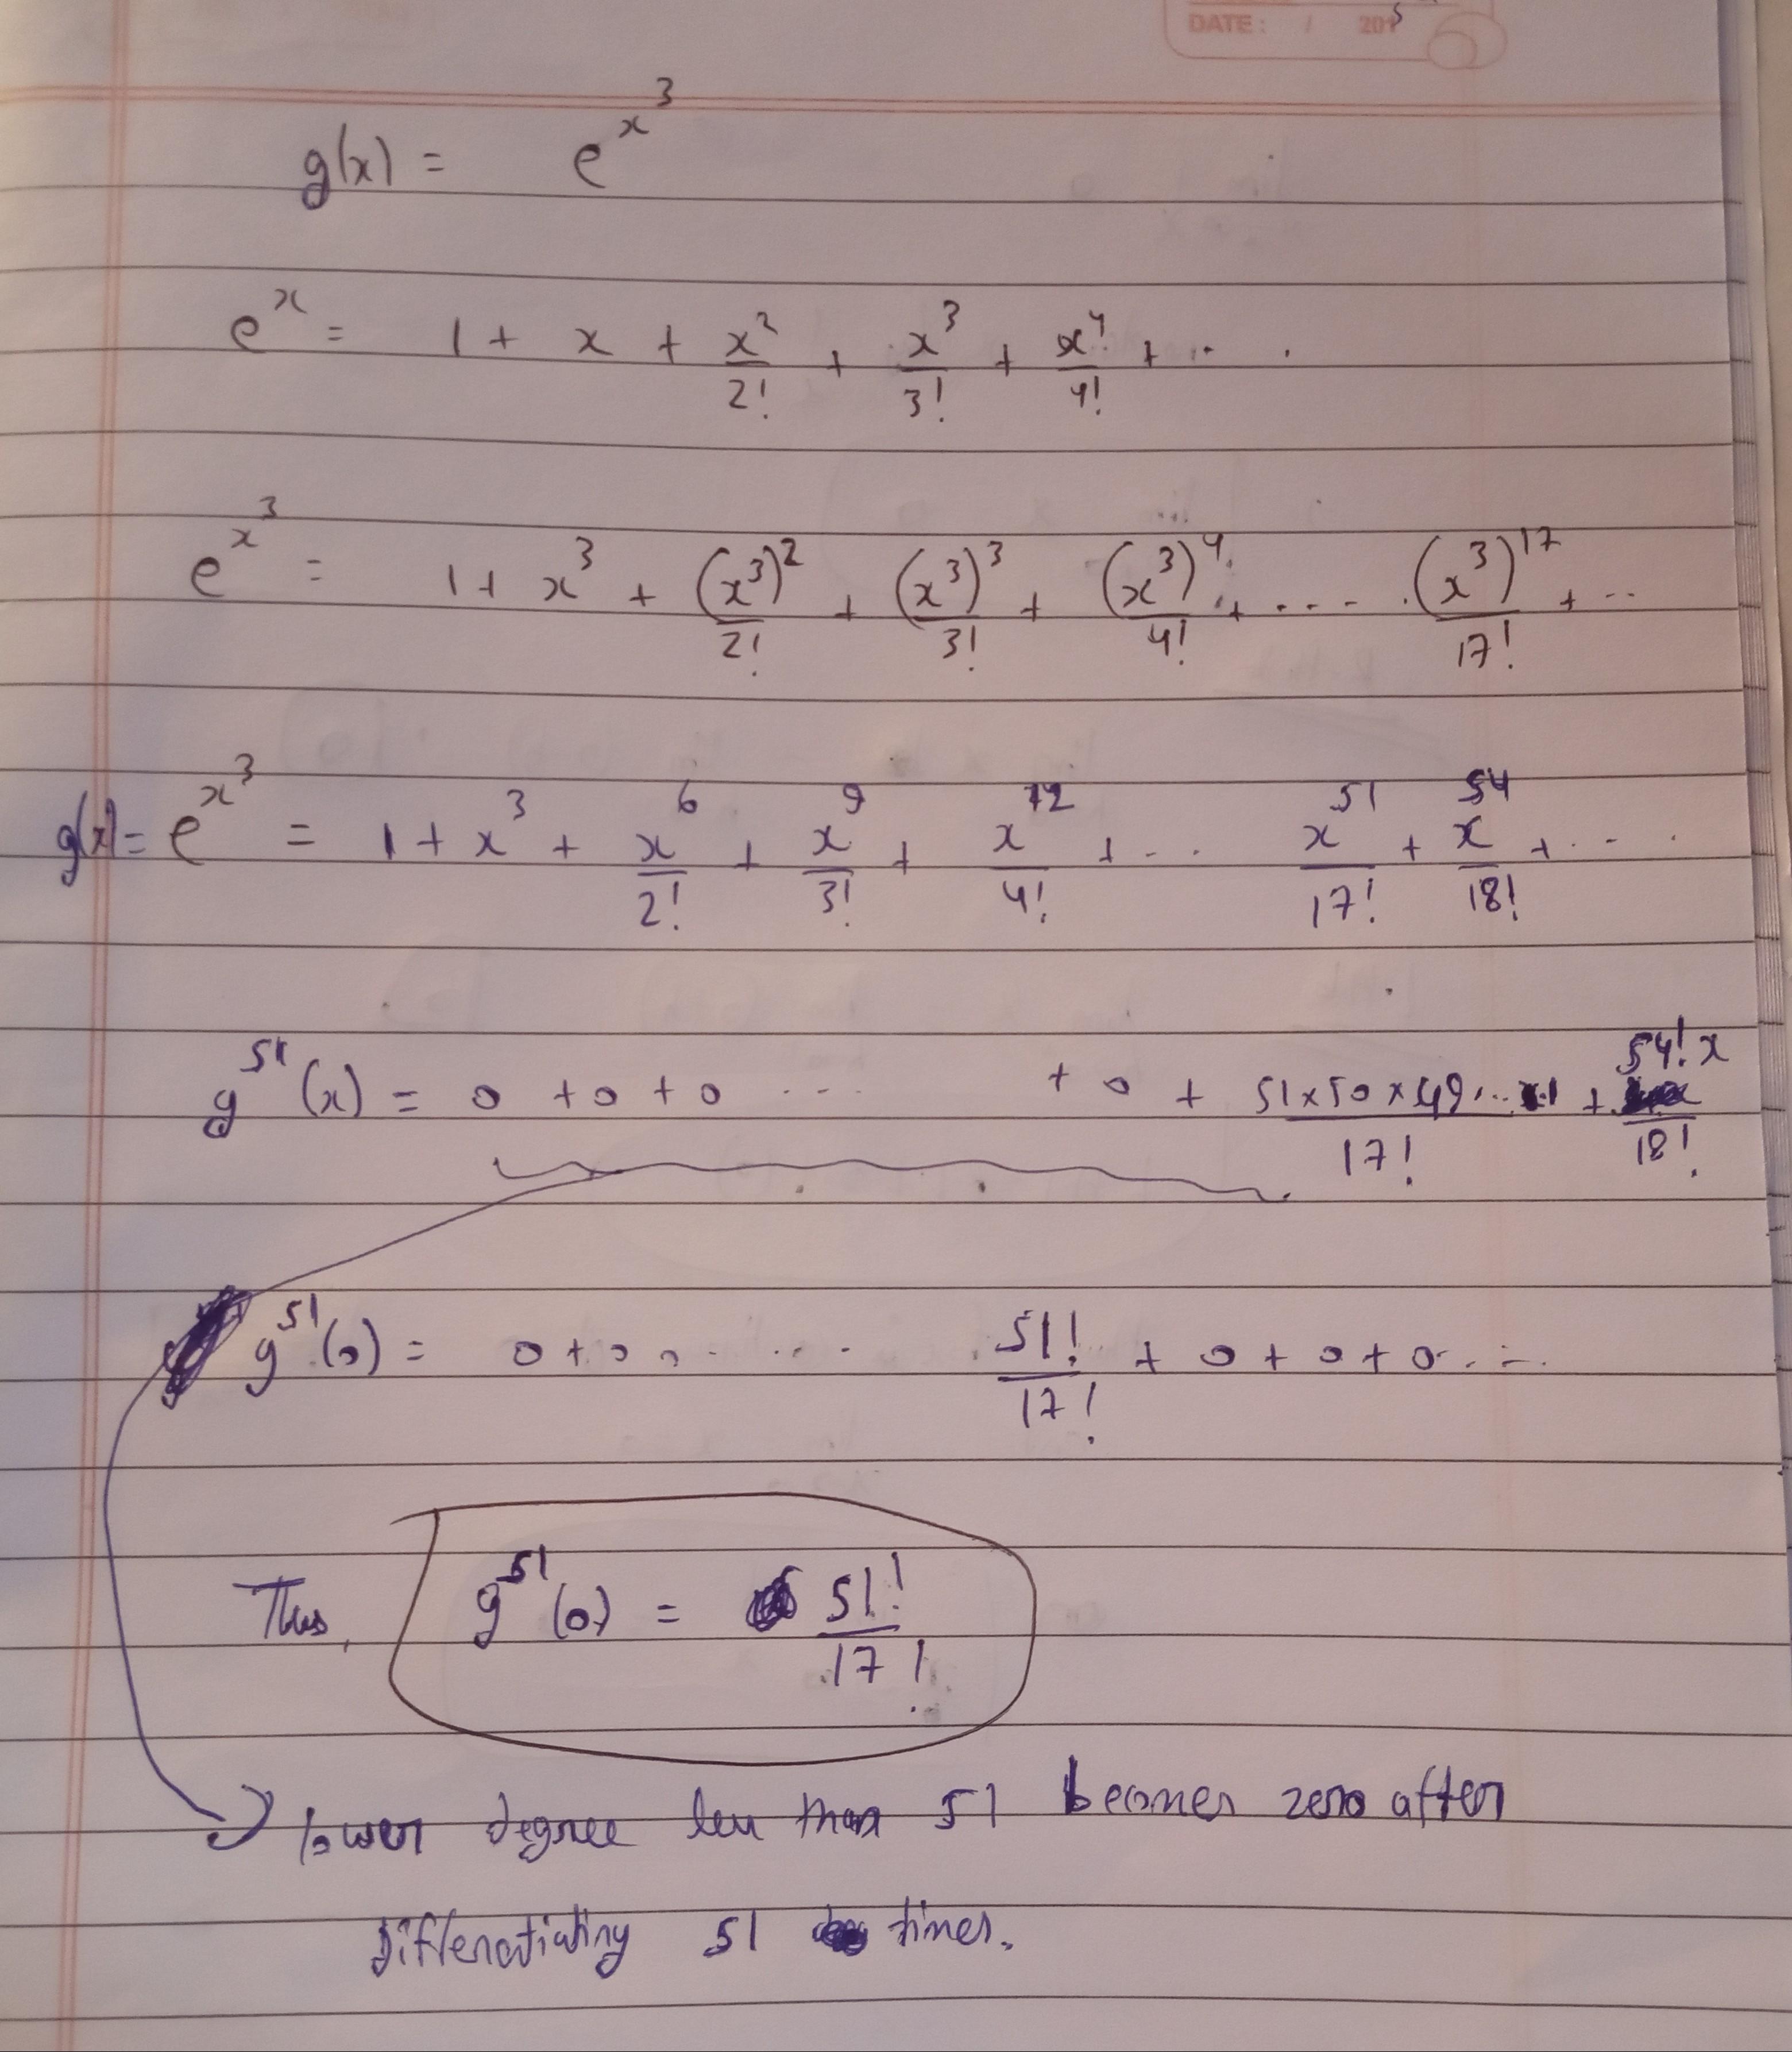 DATE: / 201
g(x) = e^{x^3}
e^x = 1 + x + x^2/2! + x^3/3! + x^4/4! + .. .
e^{x^3} = 1 + x^3 + (x^3)^2/2! + (x^3)^3/3! + (x^3)^4/4! + .... (x^3)^17/17! + ..
g(x) = e^{x^3} = 1 + x^3 + x^6/2! + x^9/3! + x^12/4! + ... x^51/17! + x^54/18! + ...
g^51(x) = 0 + 0 + 0 ... + 0 + 51x50x49...x1/17! + 54!x/18!
g^51(0) = 0 + 0 0 ..... 51!/17! + 0 + 0 + 0....
Thus, g^51(0) = 51!/17!
lower degree less than 51 becomes zero after
differentiating 51 times.